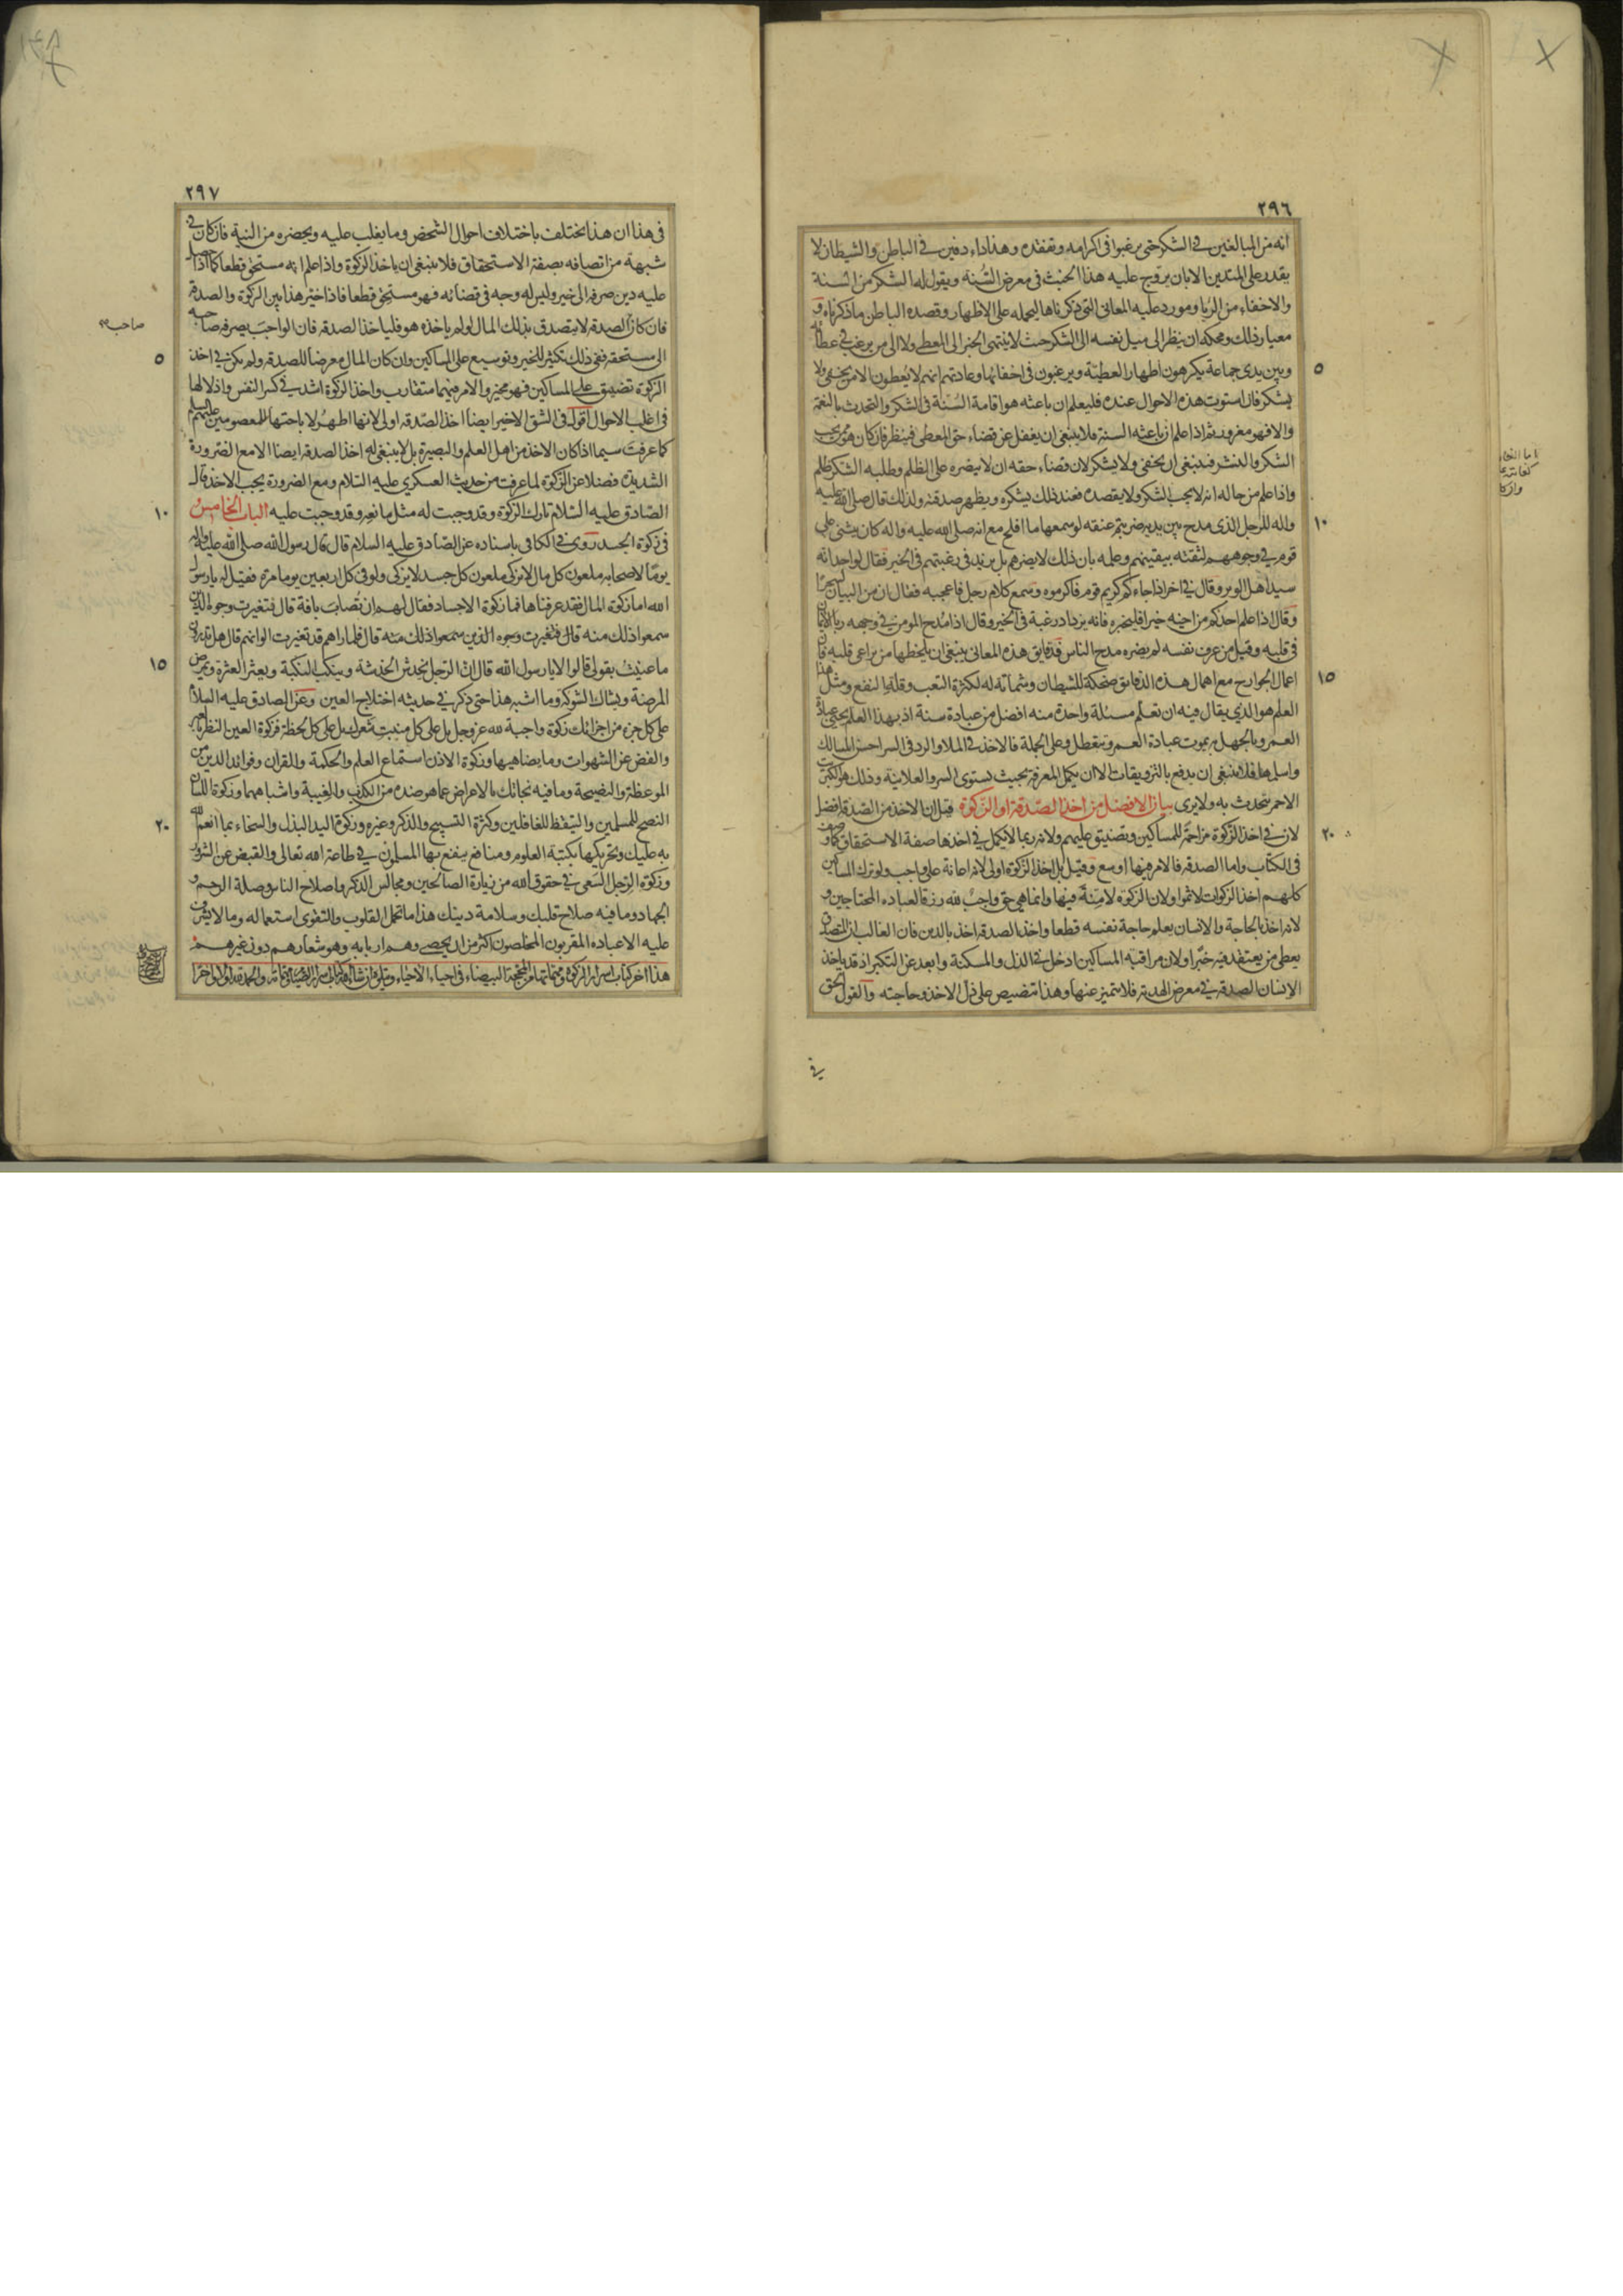 ٢٩٦
انه من المبالغين في الشكر حتى يرغبوا في اكرامه وتفقده وهذا داء دفين في الباطن والشيطان لا
يقدر على المتدين الا بان يروج عليه هذا الخبث في معرض السُنة ويقول له الشكر من السنة
والاخفاء من الريا ومورد عليه المعاني التي ذكرناها ليحمله على الاظهار وقصده الباطن ما ذكرناه و
معيار ذلك ومحكه ان ينظر الى ميل نفسه الى الشكر حيث لا ينتهى الخبر الى المعطى ولا الى من يرغب في عطائه
وبين يدى جماعة يكرهون اظهار العطية ويرغبون في اخفائها وعادتهم انهم لا يعطون الا من يخفى ولا
يشكر فان استوت هذه الاحوال عنده فليعلم ان باعثه هو اقامة السُنة في الشكر والتحدث بالنعمة
والا فهو مغرور ثم اذا علم ان باعثه السنة فلا ينبغى ان يغفل عن قضاء حق المعطى فينظر فان كان هو ممن يحب
الشكر والنشر فينبغى ان يخفى ولا يشكر لان قضاء حقه ان لا ينصره على الظلم وطلبه الشكر ظلم
واذا علم من حاله انه لا يحب الشكر ولا يقصده فعند ذلك يشكره ويظهر صدقته ولذلك قال صلى الله عليه
واله للرجل الذى مدح بين يديه ضربتم عنقه لو سمعها ما افلح مع انه صلى الله عليه واله كان يثنى على
قوم في وجوههم لثقته بيقينهم وعلمه بان ذلك لا يضرهم بل يزيد في رغبتهم في الخير فقال لواحد انه
سيد اهل الوبر وقال في اخر اذا جاءكم كريم قوم فاكرموه وسمع كلام رجل فاعجبه فقال ان من البيان لسحرا
وقال اذا علم احدكم من اخيه خيرا فليخبره فانه يزداد رغبة في الخير وقال اذا مُدح المومن في وجهه ربا الايمان
في قلبه وقيل من عرف نفسه لم يضره مدح الناس فدقايق هذه المعانى ينبغى ان يلحظها من يراعى قلبه فان
اعمال الجوارح مع اهمال هذه الدقايق ضحكة للشيطان وشماتة له لكثرة التعب وقلة النفع ومثل هذا
العلم هو الذي يقال فيه ان تعلم مسئلة واحدة منه افضل من عبادة سنة اذ بهذا العلم يحيى عبادة
العمر وبالجهل به يموت عبادة العمر وتتعطل وعلى الجملة فالاخذ في الملا والرد في السر احسن المسالك
واسلمها فلا ينبغى ان يدفع بالتزويقات الا ان يكمل المعرفة بحيث يستوى السر والعلانية وذلك هو الكبريت
الاحمر يتحدث به ولا يرى بيان الافضل من اخذ الصّدقة او الزّكوة قيل ان الاخذ من الصّدقة افضل
لان في اخذ الزّكوة مزاحمة للمساكين وتضييق عليهم ولانه ربما لا يكمل في اخذها صفة الاستحقاق كما وصف
في الكتاب واما الصدقة فالامر فيها اوسع وقيل بل اخذ الزّكوة اولى لانه اعانة على واجب ولو ترك المساكين
كلهم اخذ الزكوات لاثموا ولان الزّكوة لا مِنةَ فيها وانما هي حق واجب لله رزقا لعباده المحتاجين و
لانه اخذ بالحاجة والانسان يعلم حاجة نفسه قطعا واخذ الصدقة اخذ بالدين فان الغالب ان المتصدق
يعطى من يعتقد فيه خيرا ولان مراقبة المساكين ادخل في الذل والمسكنة وابعد عن التكبر اذ قد ياخذ
الانسان الصدقة في معرض الهدية فلا تتميز عنها وهذا تنصيص على ذل الاخذ وحاجته والقول الحق
في
٥
١٠
١٥
٢٠
٢٩٧
في هذا ان هذا يختلف باختلاف احوال الشخص وما يغلب عليه ويحضره من النية فان كان في
شبهة من اتصافه بصفة الاستحقاق فلا ينبغى ان ياخذ الزكوة واذا علم انه مستحق قطعا كما اذا حصل
عليه دين صرفه الى خير وليس له وجه في قضائه فهو مستحق قطعا فاذا خيّر هذا بين الزكوة والصدقة
فان كان الصدقة لا يتصدق بذلك المال لو لم ياخذه هو فلياخذ الصدقة فان الواجب يصرفه صاحبه
الى مستحقه ففى ذلك تكثير للخير وتوسيع على المساكين وان كان المال معرضا للصدقة ولم يكن في اخذ
الزكوة تضييق على المساكين فهو مخير والامر فيهما متقارب واخذ الزكوة اشد في كسر النفس واذلالها
في اغلب الاحوال اقول في الشق الاخير ايضا اخذ الصّدقة اولى لانها اطهر لا باحتها للمعصومين عليهم السلم
كما عرفت سيما اذا كان الاخذ من اهل العلم والبصيرة بل لا ينبغى له اخذ الصدقة ايضا الا مع الضرورة
الشديدة فضلا عن الزكوة لما عرفت من حديث العسكري عليه السّلام ومع الضرورة يجب الاخذ قال
الصّادق عليه السّلام تارك الزكوة وقد وجبت له مثل مانعه وقد وجبت عليه الباب الخامس
في زكوة الجسد روى في الكافى باسناده عن الصّادق عليه السلام قال قال رسول الله صلى الله عليه واله
يومًا لاصحابه ملعون كل مال لا يزكى ملعون كل جسد لا يزكى ولو في كل اربعين يوما مرة فقيل له يا رسول
الله اما زكوة المال فقد عرفناها فما زكوة الاجساد فقال لهم ان تُصاب بافة قال فتغيرت وجوه الذين
سمعوا ذلك منه قال فتغيرت وجوه الذين سمعوا ذلك منه قال فلما راهم قد تغيرت الوانهم قال هل تدرون
ما عنيت بقولى قالوا لا يا رسول الله قال ان الرّجل يخدش الخدشة وينكب النكبة ويعثر العثرة ويمرض
المرضة ويشاك الشوكة وما اشبه هذا حتى ذكر في حديثه اختلاج العين وعن الصادق عليه السلام
على كل جزء من اجزائك زكوة واجبة لله عز وجل بل على كل منبت شعرك بل على كل لحظة فزكوة العين النظر بالعبرة
والغض عن الشهوات وما يضاهيها وزكوة الاذن استماع العلم والحكمة والقران وفوائد الدين من
الموعظة والنصيحة وما فيه نجاتك بالاعراض عما هو ضده من الكذب والغيبة واشباههما وزكوة اللسان
النصح للمسلمين والتيقظ للغافلين وكثرة التسبيح والذكر وغيره وزكوة اليد البذل والسخاء بما انعم الله
به عليك وتحريكها بكتبة العلوم ومنافع ينفع بها المسلمون في طاعة الله تعالى والقبض عن الشرور
وزكوة الرّجل السّعى في حقوق الله من زيارة الصالحين ومجالس الذكر واصلاح الناس وصلة الرحم و
الجهاد وما فيه صلاح قلبك وسلامة دينك هذا ما تحمل القلوب والتقوى استعماله وما لا يشرف
عليه الا عباده المقربون المخلصون اكثر من ان يحصى وهم اربابه وهو شعارهم دون غيرهم
هذا اخر كتاب اسرار الزكوة ومهماتها من المحجة البيضاء في احياء الاحياء ويتلوه ان شاء الله كتاب اسرار الصيام ومهماته والحمد لله اولا واخرا
صاحبه
٥
١٠
١٥
٢٠